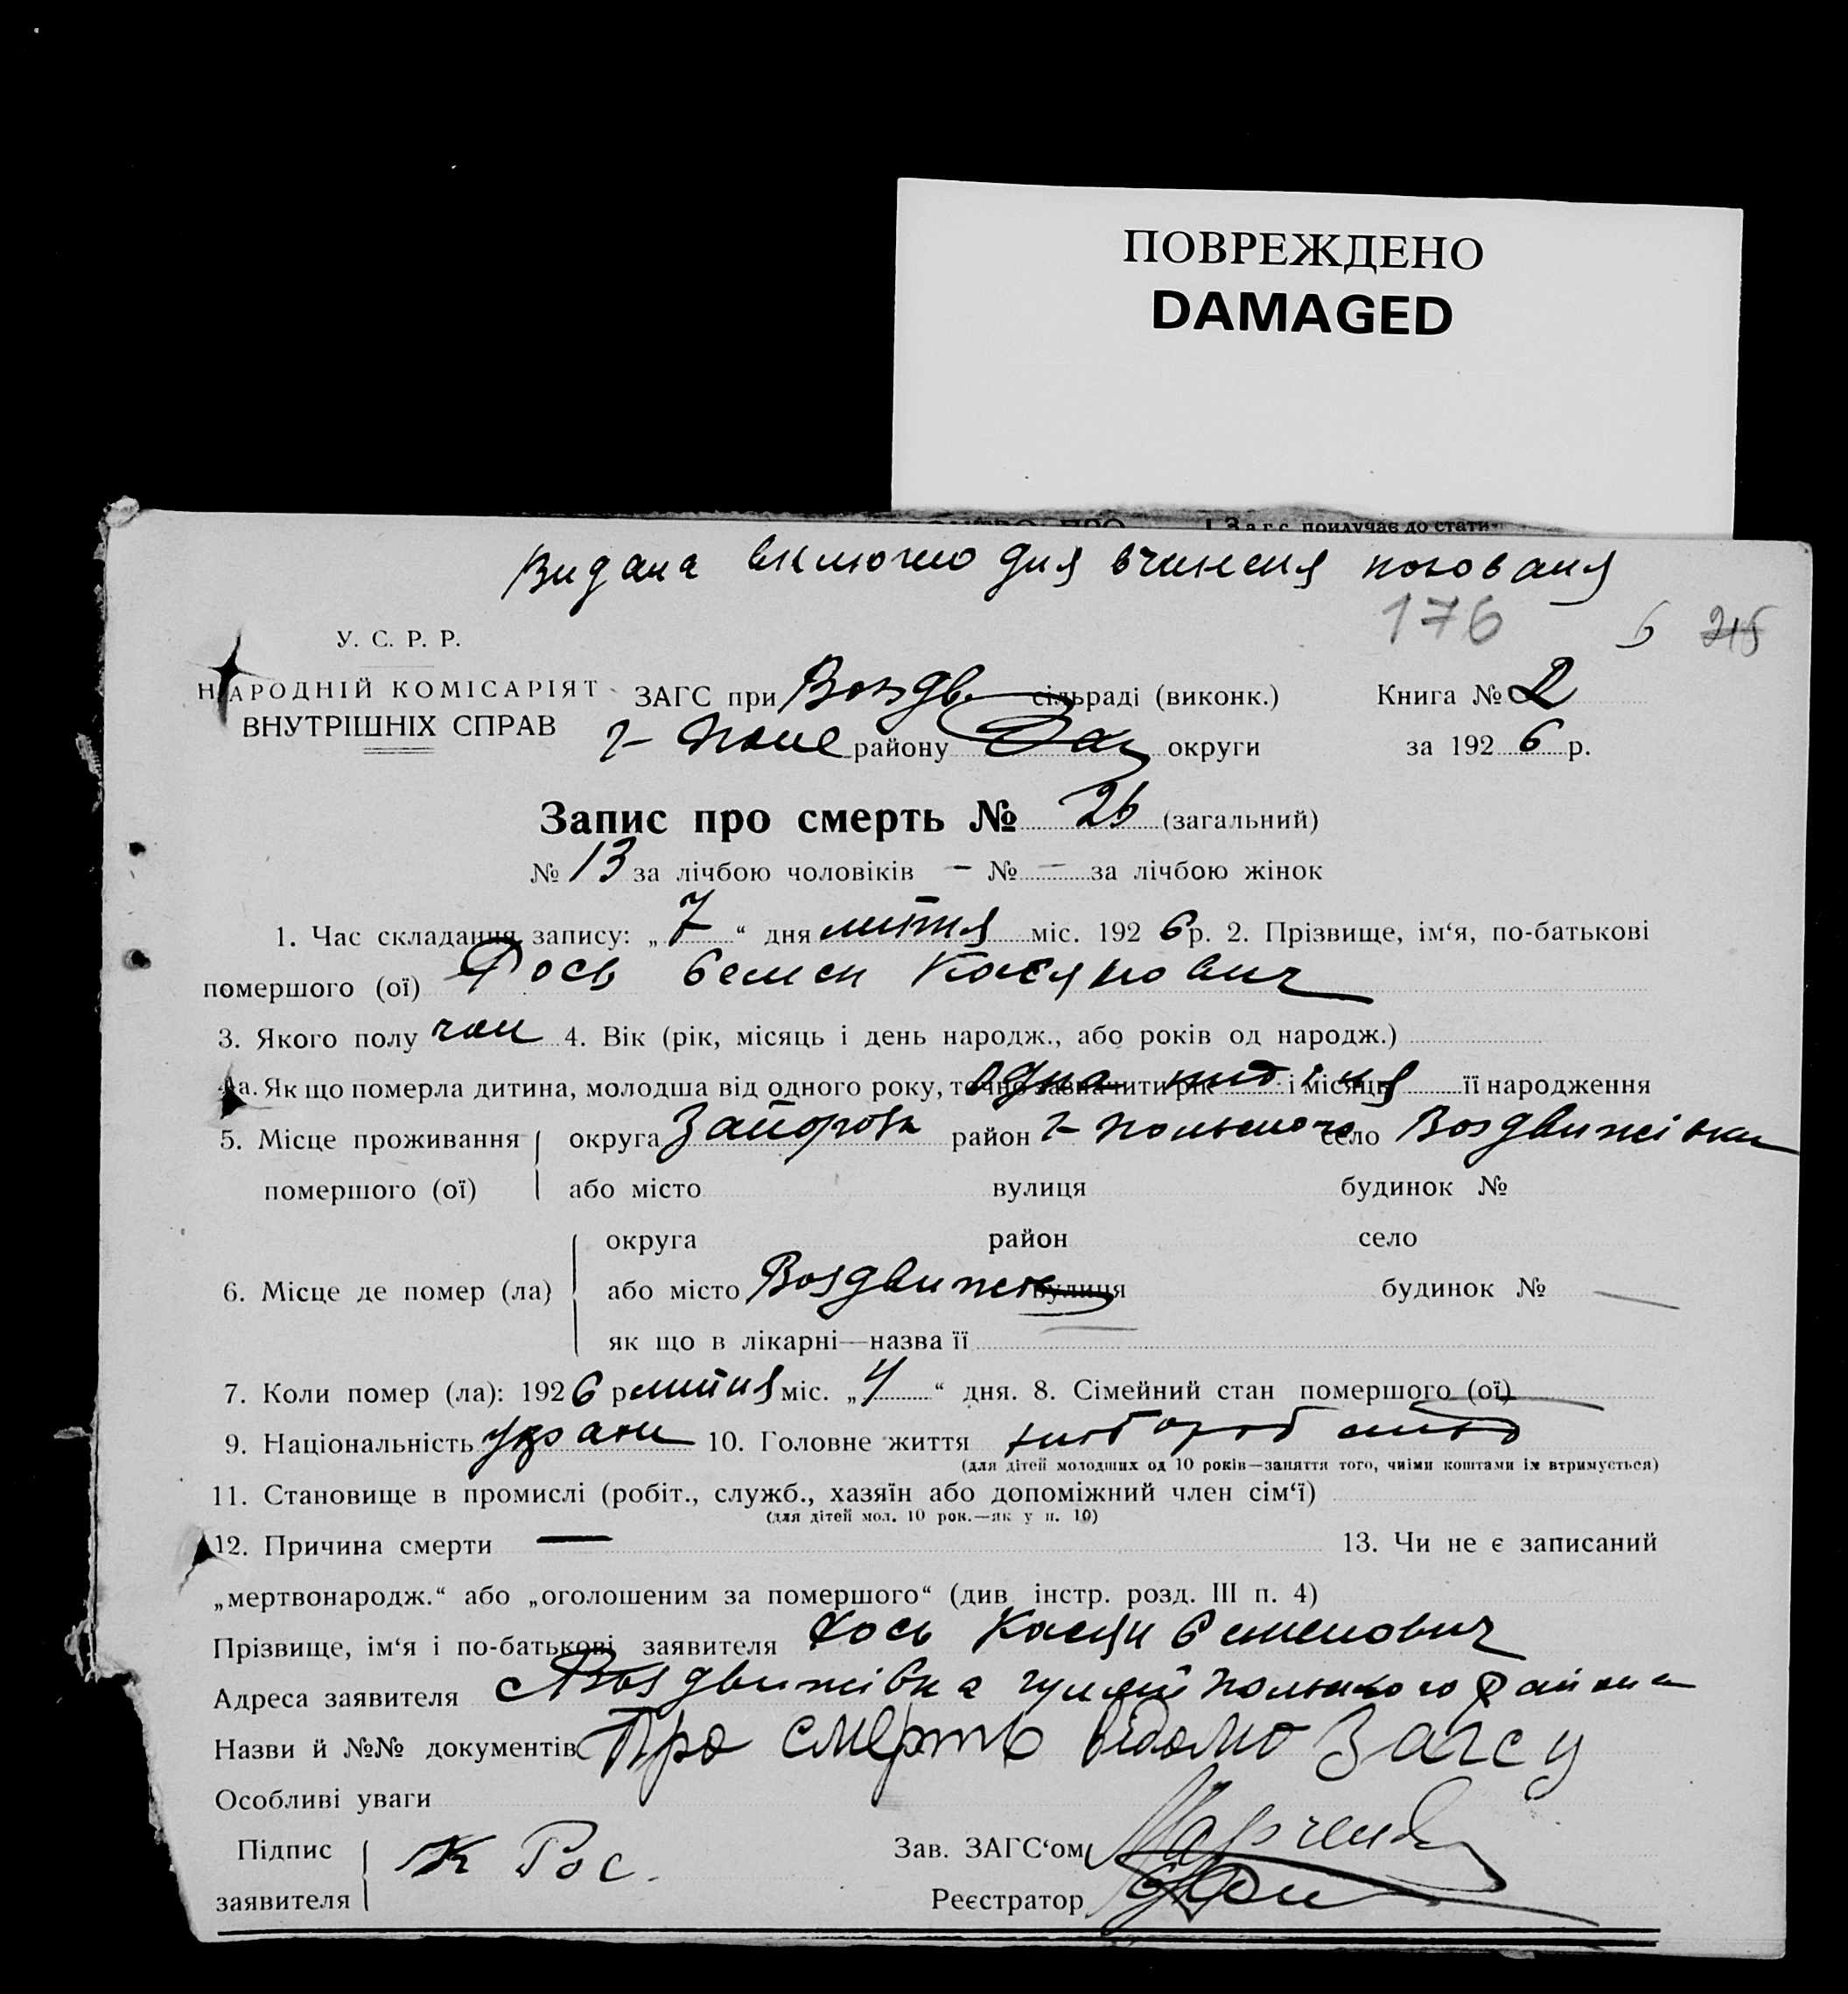 ПОВРЕЖДЕНО
DAMAGED
1 Загс прилучає до стати-
Видана включно для вчиненя похованя
176 6 215
У. С. Р. Р.
НАРОДНІЙ КОМІСАРІЯТ ЗАГС при Воздв. сільраді (виконк.) Книга № 2
ВНУТРІШНІХ СПРАВ Г-Поле району Зап округи за 1926 р.
Запис про смерть № 26 (загальний)
№ 13 за лічбою чоловіків — № — за лічбою жінок
1. Час складання запису: „7“ дня липня міс. 1926 р. 2. Прізвище, ім‘я, по-батькові
помершого (ої) Фось Семен Касянович
3. Якого полу чол 4. Вік (рік, місяць і день народж., або років од народж.)
4а. Як що померла дитина, молодша від одного року, точно зазначити рік і місяць її народження
одна неділя
5. Місце проживання округа Запоро район Г-Польського село Воздвижівка
помершого (ої) або місто вулиця будинок №
округа район село
6. Місце де помер (ла) або місто Воздвиж вулиця будинок № —
як що в лікарні—назва її —
7. Коли помер (ла): 1926 р липня міс. „4“ дня. 8. Сімейний стан помершого (ої) —
9. Національність україн 10. Головне життя хлібороб
(для дітей молодших од 10 років—заняття того, чиїми коштами їх втримується)
11. Становище в промислі (робіт., служб., хазяїн або допоміжний член сім‘ї)
(для дітей мол. 10 рок.—як у п. 10)
12. Причина смерти — 13. Чи не є записаний
„мертвонародж.“ або „оголошеним за помершого“ (див. інстр. розд. III п. 4)
Прізвище, ім‘я і по-батькові заявителя Фось Касян Семенович
Адреса заявителя с Воздвижівка Гуляйпольського району
Назви й №№ документів Про смерть відомо Загсу
Особливі уваги
Підпис К Фос. Зав. ЗАГС‘ом Марченко
заявителя Реєстратор